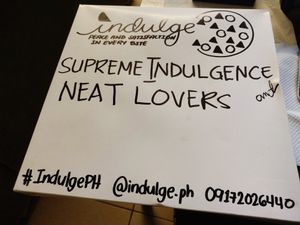 indulge
PEACE AND SATISFACTION
IN EVERY BITE
SUPREME INDULGENCE
and
NEAT LOVERS
#IndulgePH @indulge.ph 09172026440